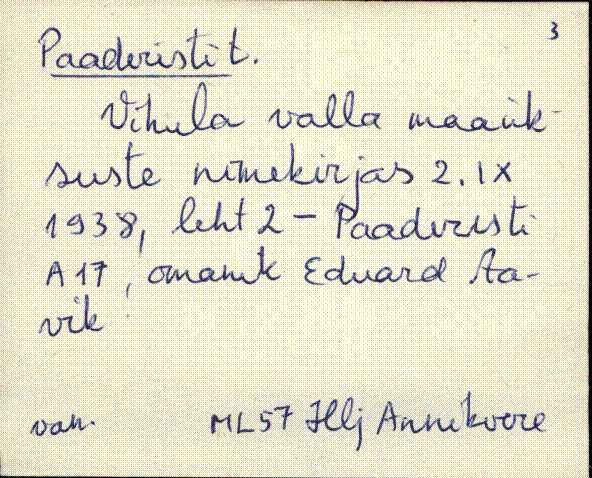 3
Paaderisti t.
Vihula valla maaük-
suste nimekirjas 2. IX
1938, leht 2 – Paaderisti
A 17, omanik Eduard Aa-
vik
van. ML57 Hlj Annikvere